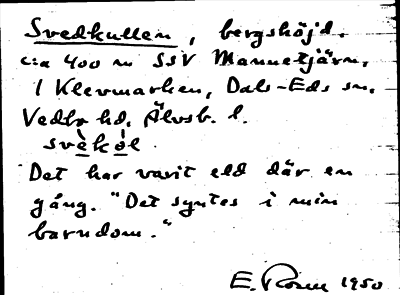 Svedkullen, bergshöjd.
c:a 400 m SSV Mannetjärn.
I Klevmarken, Dals-Eds sn.
Vedbo hd. Älvsb. l.
svèkòl
Det har varit eld där en
gång. "Det syntes i min
barndom."
E. Rosen 1950